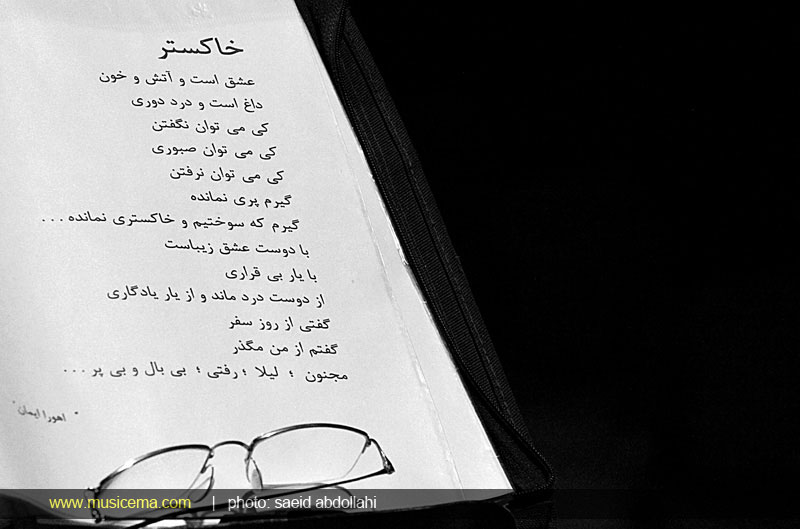 خاکستر
عشق است و آتش و خون
داغ است و درد دوری
کی می توان نگفتن
کی می توان صبوری
کی می توان نرفتن
گیرم پری نمانده
گیرم که سوختیم و خاکستری نمانده ...
با دوست عشق زیباست
با یار بی قراری
از دوست درد ماند و از یار یادگاری
گفتی از روز سفر
گفتم از من مگذر
مجنون ؛ لیلا ؛ رفتی ؛ بی بال و بی پر ...
" اهورا ایمان "
www.musicema.com | photo: saeid abdollahi